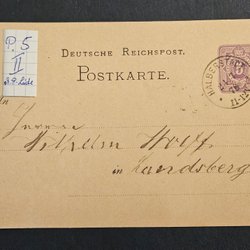 P. 5
II
DEUTSCHE REICHSPOST.
POSTKARTE.
HALBERSTADT
Herrn
Wilhelm Wolff
in Landsberg